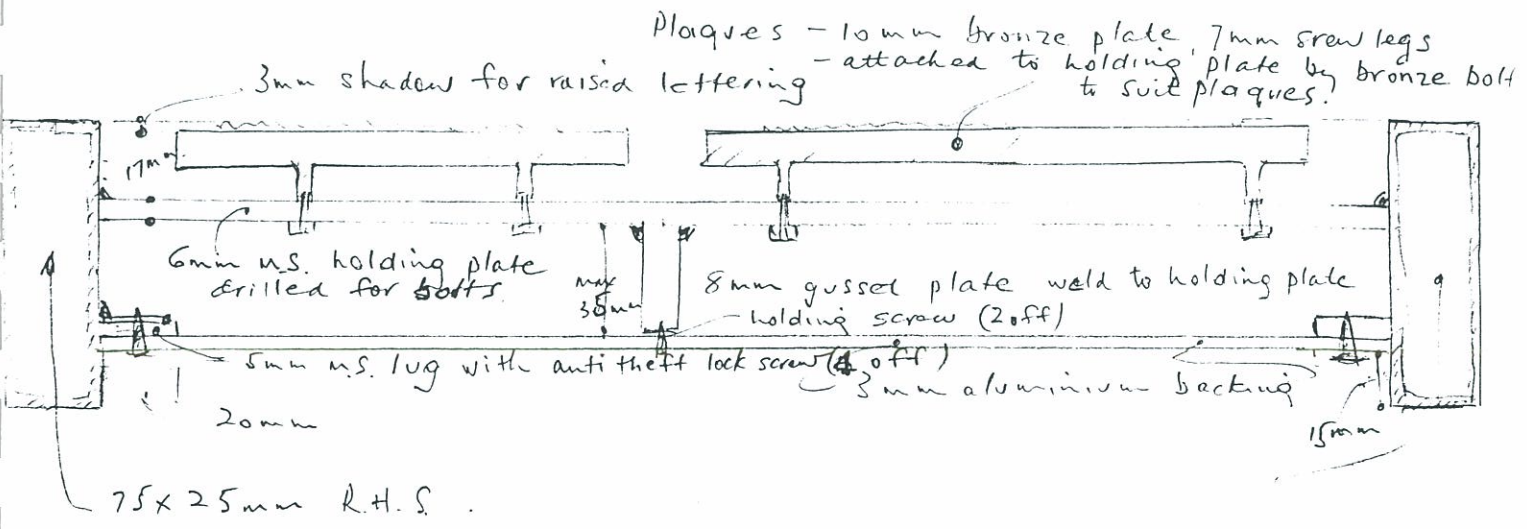 Plaques - 10mm bronze plate, 7mm srew legs
- attached to holding plate by bronze bolt
to suit plaques.
3mm shadow for raised lettering
17mm
6mm M.S. holding plate
drilled for bolts.
max
35mm
8mm gusset plate weld to holding plate
- holding screw (2 off)
5mm M.S. lug with anti theft lock screw (4 off)
3mm aluminium backing
20mm
15mm
75x25mm R.H.S.